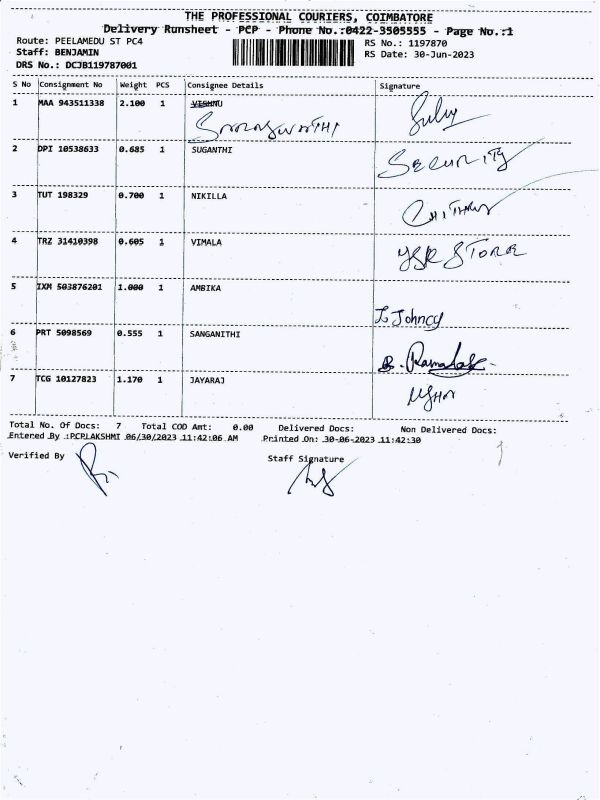 THE PROFESSIONAL COURIERS, COIMBATORE
Delivery Runsheet - PCP - Phone No.:0422-3505555 - Page No.:1
Route: PEELAMEDU ST PC4
RS No.: 1197870
Staff: BENJAMIN
RS Date: 30-Jun-2023
DRS No.: DCJB119787001
S No Consignment No Weight PCS Consignee Details Signature
1 MAA 943511338 2.100 1 VISHNU
2 DPI 10538633 0.685 1 SUGANTHI SECURITY
3 TUT 198329 0.700 1 NIKILLA
4 TRZ 31410398 0.605 1 VIMALA YSR STORE
5 IXM 503876201 1.000 1 AMBIKA
Johncy
6 PRT 5098569 0.555 1 SANGANITHI
7 TCG 10127823 1.170 1 JAYARAJ
Total No. Of Docs: 7 Total COD Amt: 0.00 Delivered Docs: Non Delivered Docs:
Entered By :PCPLAKSHMI 06/30/2023 11:42:06 AM Printed On: 30-06-2023 11:42:30
Verified By Staff Signature